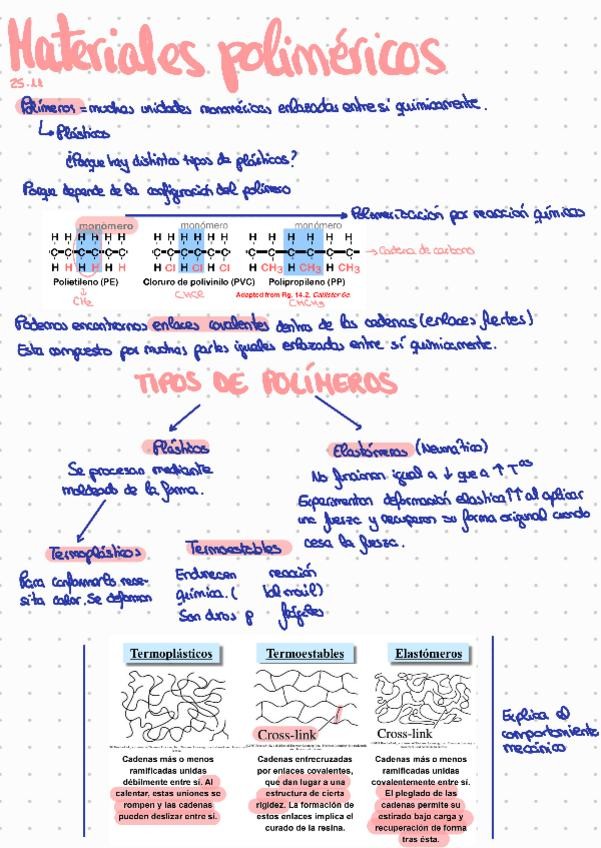 Materiales poliméricos
25.11
Polímeros = muchas unidades monoméricas enlazadas entre sí quimicamente.
Plásticos
¿Porque hay distintos tipos de plásticos?
Porque depende de la configuración del polímero
Polimerización por reacción química
monómero monómero monómero
H H H H H H H H H H H H H H H H H H
C C C C C C C C C C C C C C C C C C
H H H H H H H Cl H Cl H Cl H CH3 H CH3 H CH3
Cadena de carbono
Polietileno (PE) Cloruro de polivinilo (PVC) Polipropileno (PP)
Adapted from Fig. 14.2, Callister 6e.
CH2
Podemos encontrarnos enlaces covalentes dentro de las cadenas (enlaces fuertes)
Esta compuesto por muchas partes iguales enlazadas entre sí quimicamente.
TIPOS DE POLÍMEROS
Plásticos
Se procesan mediante
moldeado de la forma.
Elastómeros (Neumático)
No funcionan igual a ↓ que a ↑ Tas
Experimentan deformación elastica ↑↑ al aplicar
una fuerza y recuperan su forma original cuando
cesa la fuerza.
Termoplásticos
Para conformarlo nece-
sita calor, Se deforman
Termoestables
Endurecen reacción
química. (
Son duros frágiles
Termoplásticos Termoestables Elastómeros
Cross-link Cross-link
Cadenas más o menos
ramificadas unidas
débilmente entre sí. Al
calentar, estas uniones se
rompen y las cadenas
pueden deslizar entre sí.
Cadenas entrecruzadas
por enlaces covalentes,
que dan lugar a una
estructura de cierta
rigidez. La formación de
estos enlaces implica el
curado de la resina.
Cadenas más o menos
ramificadas unidas
covalentemente entre sí.
El plegado de las
cadenas permite su
estirado bajo carga y
recuperación de forma
tras ésta.
Explica el
comportamiento
mecánico